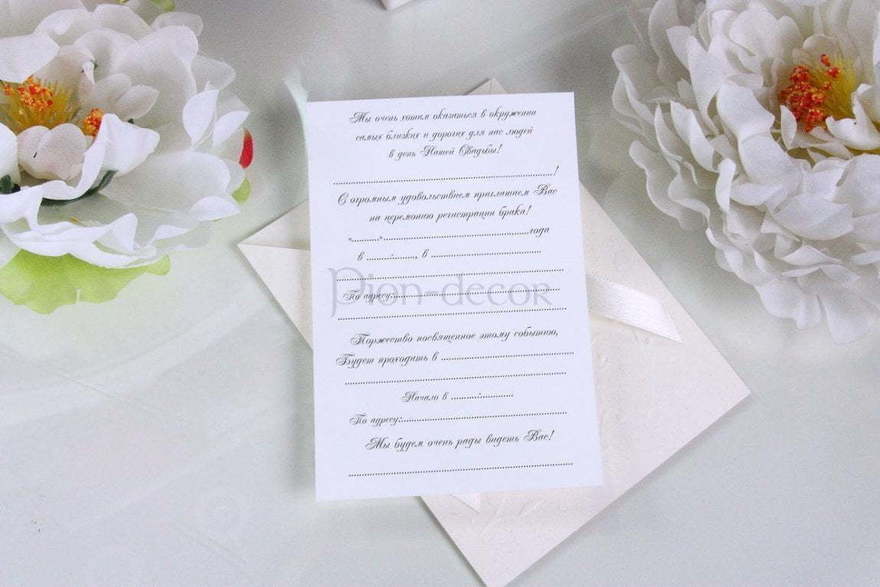 Мы очень хотим оказаться в окружении
самых близких и дорогих для нас людей
в день Нашей Свадьбы!
..............................!
С огромным удовольствием приглашаем Вас
на церемонию регистрации брака!
«..........» ..............................года
в ........:........, в ..............................
..............................
По адресу:..............................
..............................
Pion-decor
Торжество посвященное этому событию,
Будет проходить в ..............................
..............................
Начало в ..........:..........
По адресу:..............................
Мы будем очень рады видеть Вас!
..............................